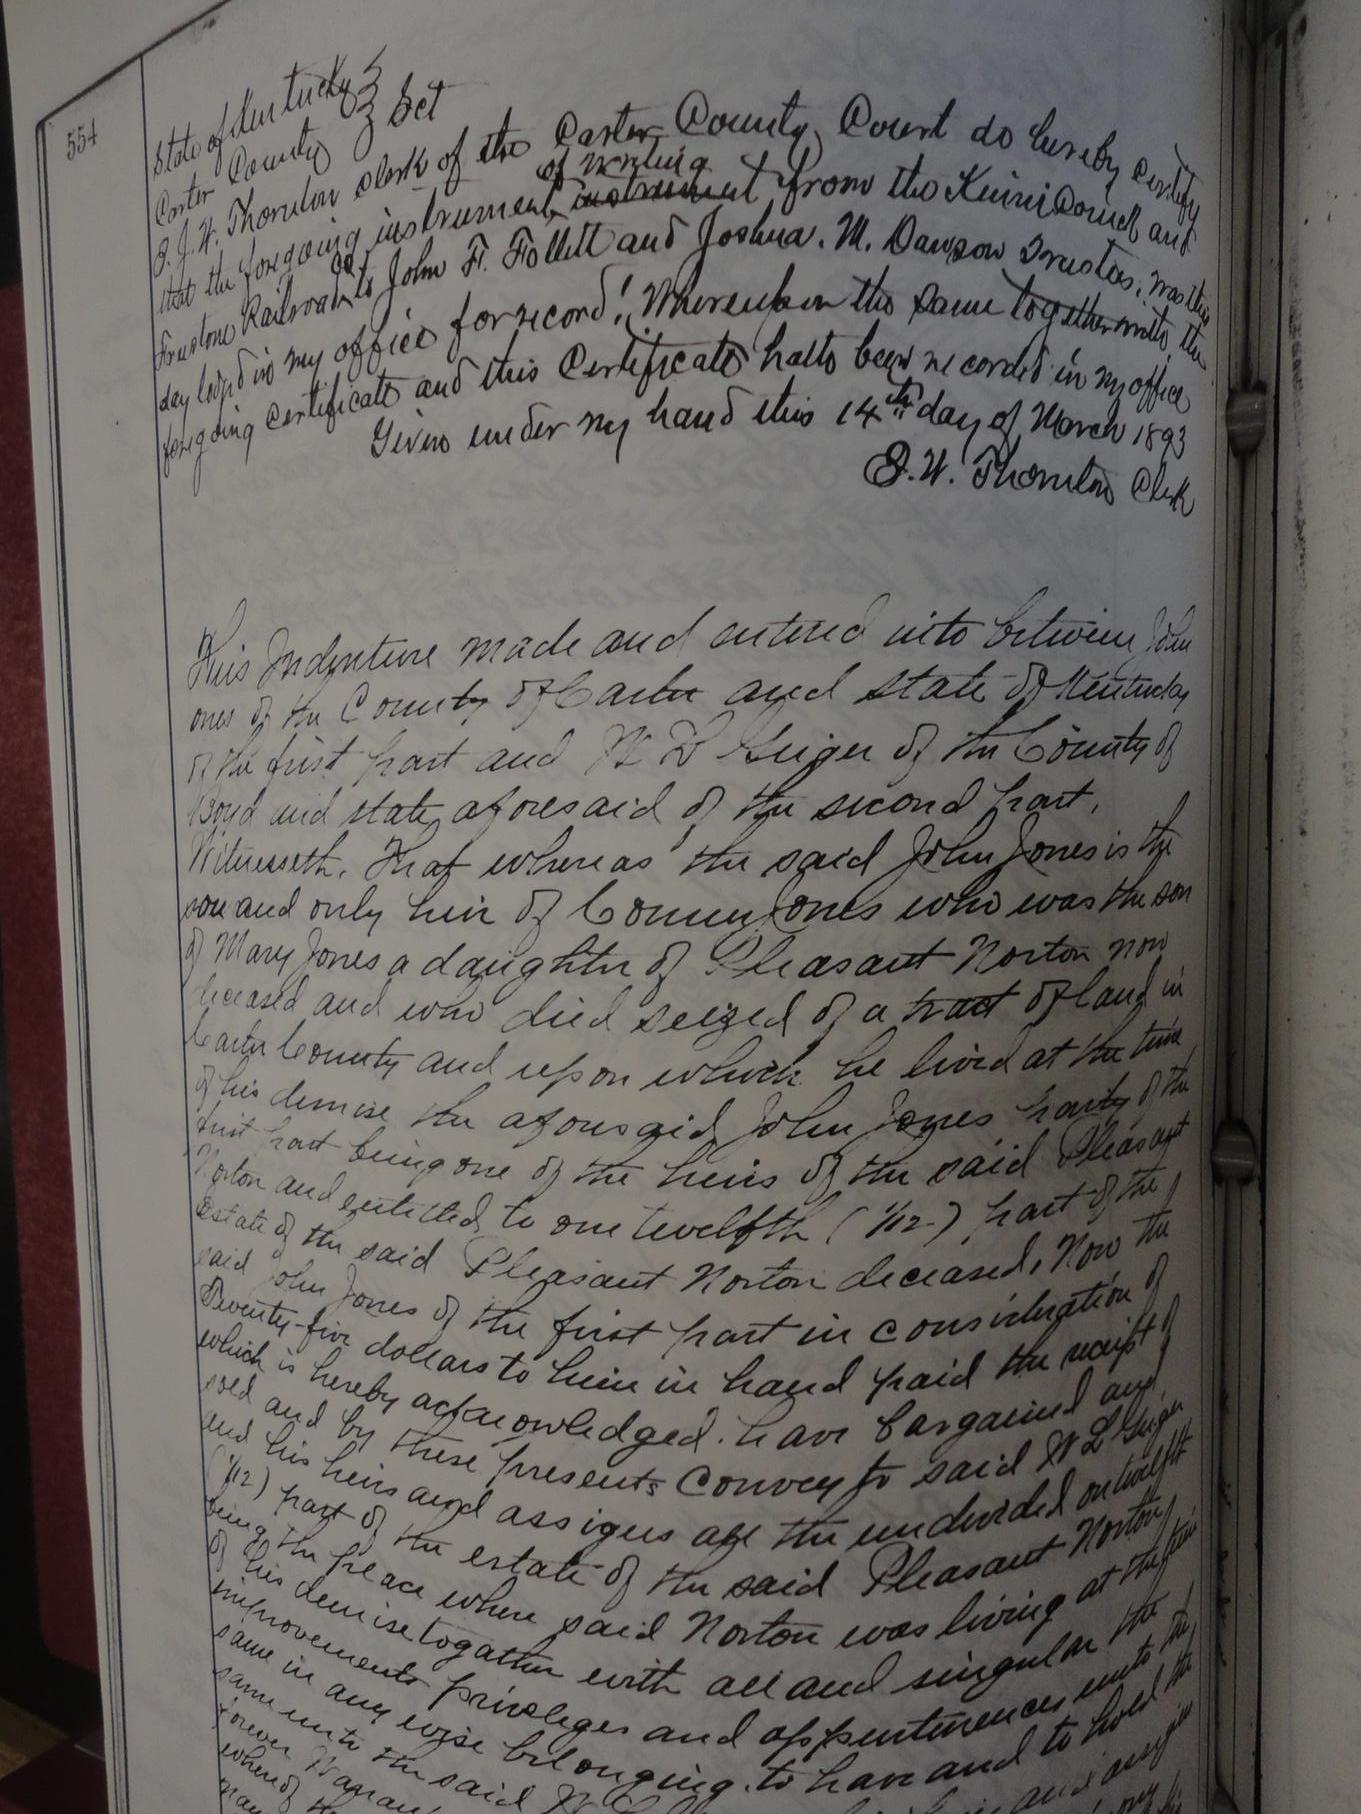 554
State of Kentucky
Carter County Sct
I J. W. Thornton clerk of the Carter County Court do hereby certify
that the foregoing instrument of writing instrument from the Kinniconick and
Freestone Railroad Co to John F. Follett and Joshua. M. Dawson Trustees, was this
day lodged in my office for record! Whereupon the same together with, the
foregoing Certificate and this Certificate hath been recorded in my office
Given under my hand this 14th day of March 1893
J. W. Thornton Clerk
This Indenture made and entered into between John
ones of the County of Carter and state of Kentucky
of the first part and W L Geiger of the County of
Boyd and state aforesaid of the second part,
Witnesseth. That whereas the said John Jones is the
son and only heir of Jones who was the son
of Mary Jones a daughter of Pleasant Norton now
deceased and who died seized of a tract of land in
Carter County and upon which he lived at the time
of his demise the aforesaid John Jones party of the
first part being one of the heirs of the said Pleasant
Norton and entitled to one twelfth (1/12) part of the
estate of the said Pleasant Norton deceased, Now the
said John Jones of the first part in consideration of
Twenty-five dollars to him in hand paid the receipt of
which is hereby acknowledged. have bargained and
sold and by these presents convey to said W L Geiger
and his heirs and assigns all the undivided one twelfth
(1/12) part of the estate of the said Pleasant Norton
being the place where said Norton was living at the time
of his demise togather with all and singular the
improvements privileges and appurtenences unto the
same in any wise belonging. to have and to hold the
same unto the said W L and assigns
forever
whereof